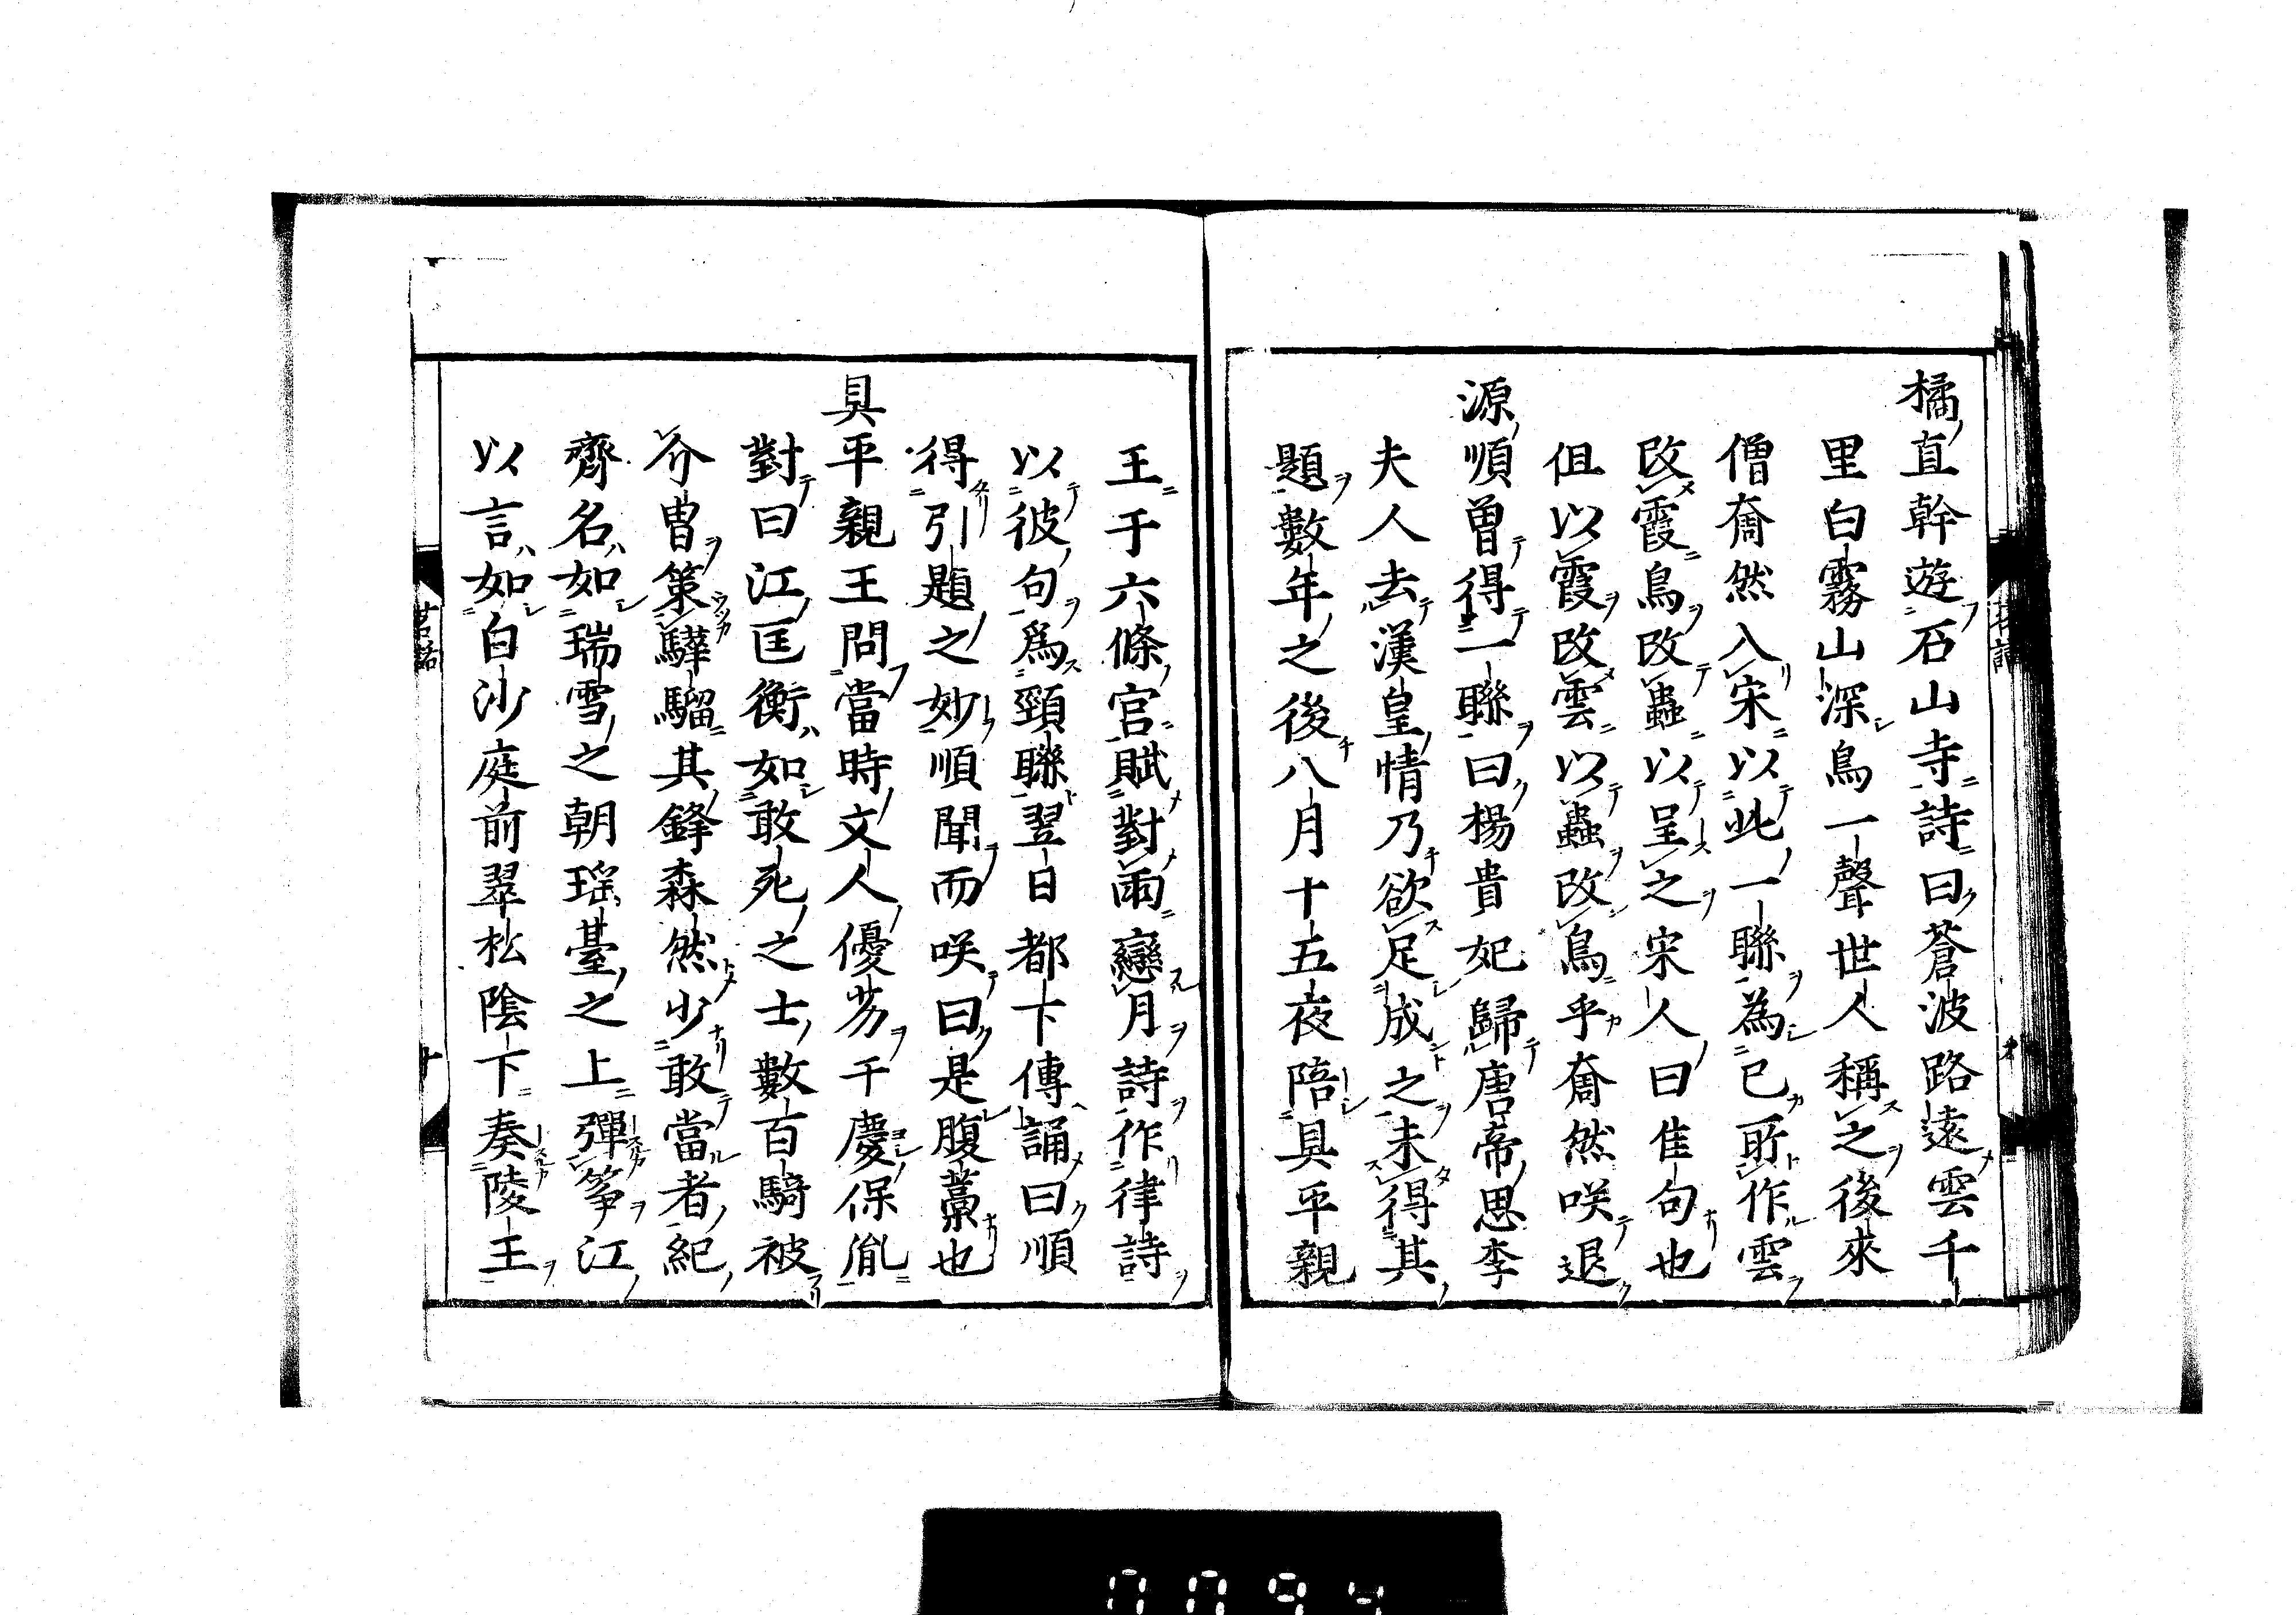 橘直幹遊石山寺詩曰蒼波路遠雲千
里白霧山深鳥一聲世人稱之後來
僧奝然入宋以此一聯為己所作雲
改霞鳥改蟲以呈之宋人曰隹句也
但以霞改雲以蟲改鳥乎奝然咲退
源順曽得一聯曰楊貴妃歸唐帝思李
夫人去漢皇情乃欲足成之未得其
題數年之後八月十五夜陪具平親
王于六條宮賦對雨戀月詩作律詩
以彼句爲頸聯翌日都下傳誦曰順
得引題之妙順聞而咲曰是腹藁也
具平親王問當時文人優劣千慶保胤
對曰江匡衡如敢死之士數百騎被
介胄策驊騮其鋒森然少敢當者紀
齊名如瑞雪之朝瑶臺之上彈筝江
以言如白沙庭前翠松陰下奏陵王
茗話
十